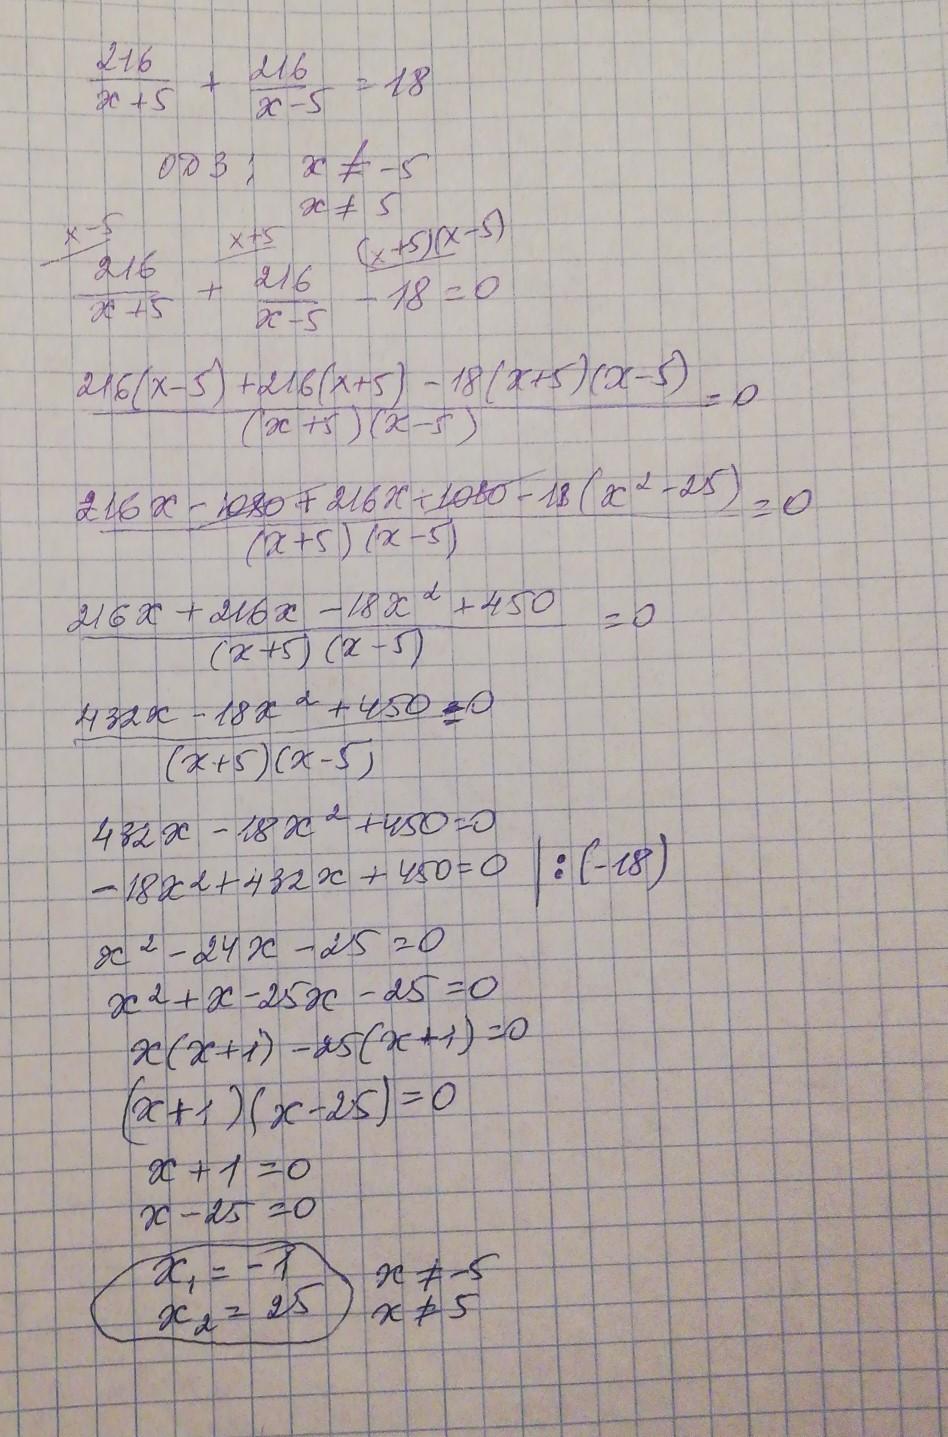 216/(x+5) + 216/(x-5) = 18
ОДЗ: x ≠ -5
x ≠ 5
x-5 x+5 (x+5)(x-5)
216/(x+5) + 216/(x-5) - 18 = 0
(216(x-5) + 216(x+5) - 18(x+5)(x-5))/((x+5)(x-5)) = 0
(216x - 1080 + 216x + 1080 - 18(x² - 25))/((x+5)(x-5)) = 0
(216x + 216x - 18x² + 450)/((x+5)(x-5)) = 0
(432x - 18x² + 450)/((x+5)(x-5)) = 0
432x - 18x² + 450 = 0
-18x² + 432x + 450 = 0 | : (-18)
x² - 24x - 25 = 0
x² + x - 25x - 25 = 0
x(x+1) - 25(x+1) = 0
(x+1)(x-25) = 0
x + 1 = 0
x - 25 = 0
x₁ = -1 x ≠ -5
x₂ = 25 x ≠ 5